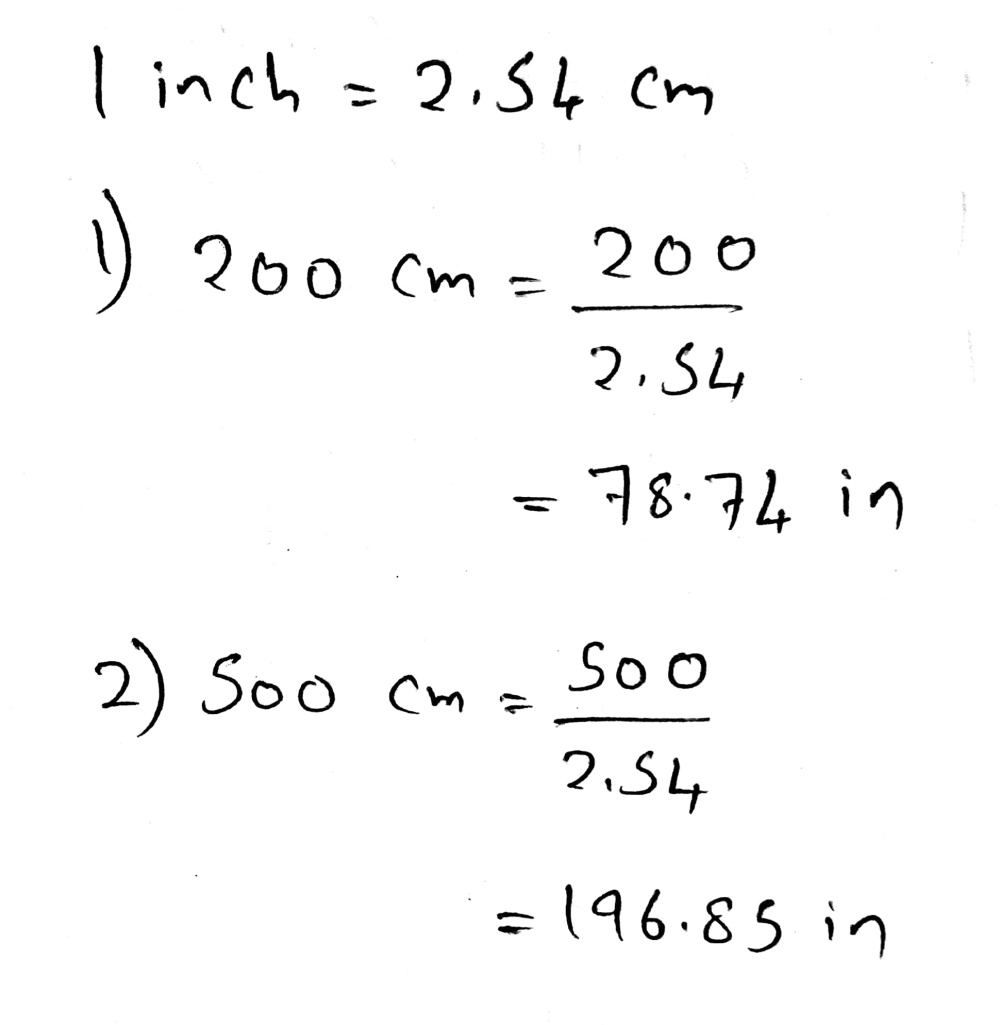 1 inch = 2.54 cm
1) 200 cm = 200
2.54
= 78.74 in
2) 500 cm = 500
2.54
= 196.85 in